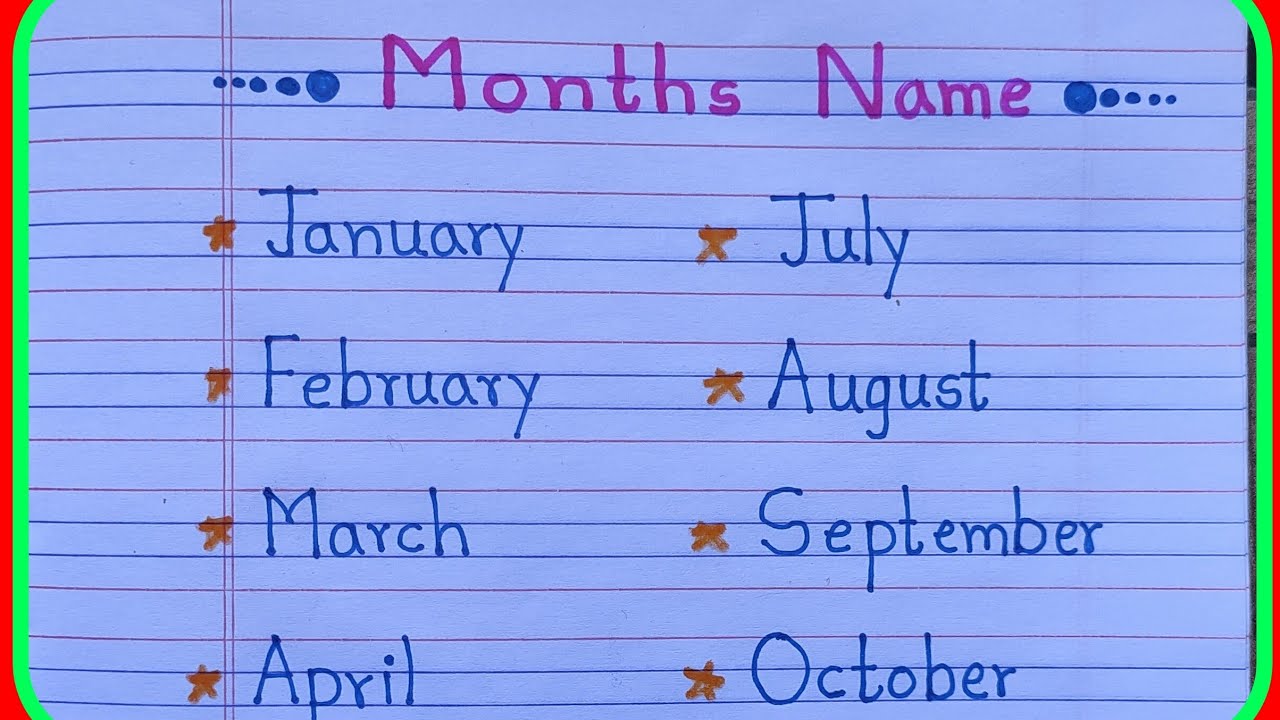 Months Name
January July
February August
March September
April October